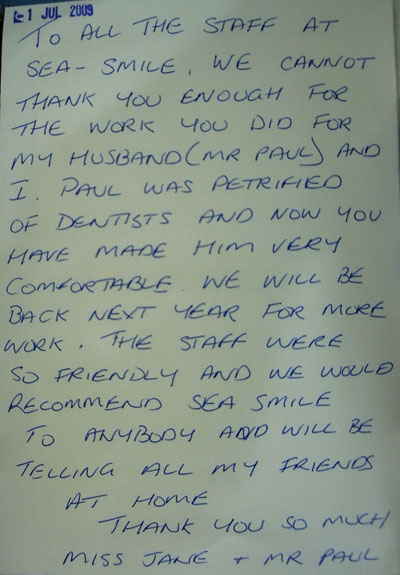 -1 JUL 2009
TO ALL THE STAFF AT
SEA-SMILE, WE CANNOT
THANK YOU ENOUGH FOR
THE WORK YOU DID FOR
MY HUSBAND (MR PAUL) AND
I. PAUL WAS PETRIFIED
OF DENTISTS AND NOW YOU
HAVE MADE HIM VERY
COMFORTABLE. WE WILL BE
BACK NEXT YEAR FOR MORE
WORK. THE STAFF WERE
SO FRIENDLY AND WE WOULD
RECOMMEND SEA SMILE
TO ANYBODY AND WILL BE
TELLING ALL MY FRIENDS
AT HOME
THANK YOU SO MUCH
MISS JANE + MR PAUL